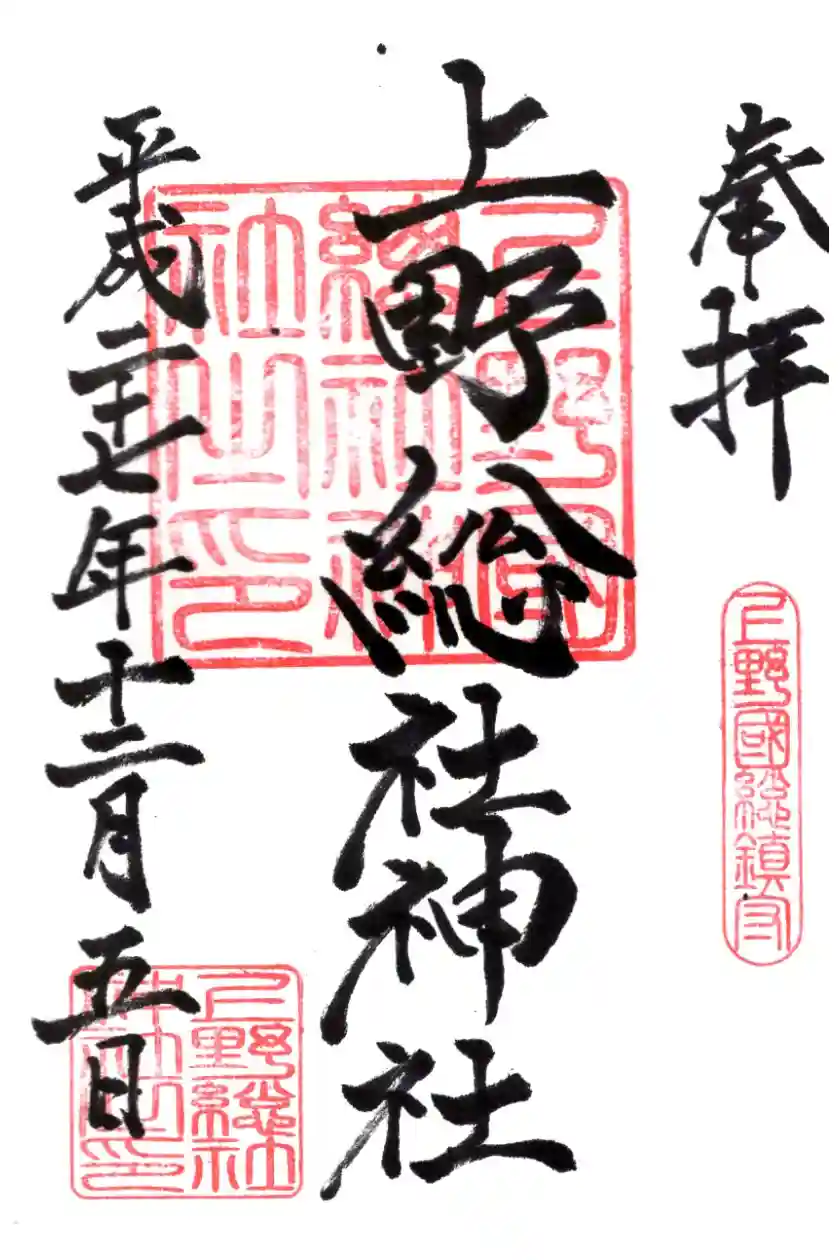 奉拝
上野國總鎮守
上野総社神社
上野國總社神社之印
平成二十七年十二月五日
上野総社神社之印